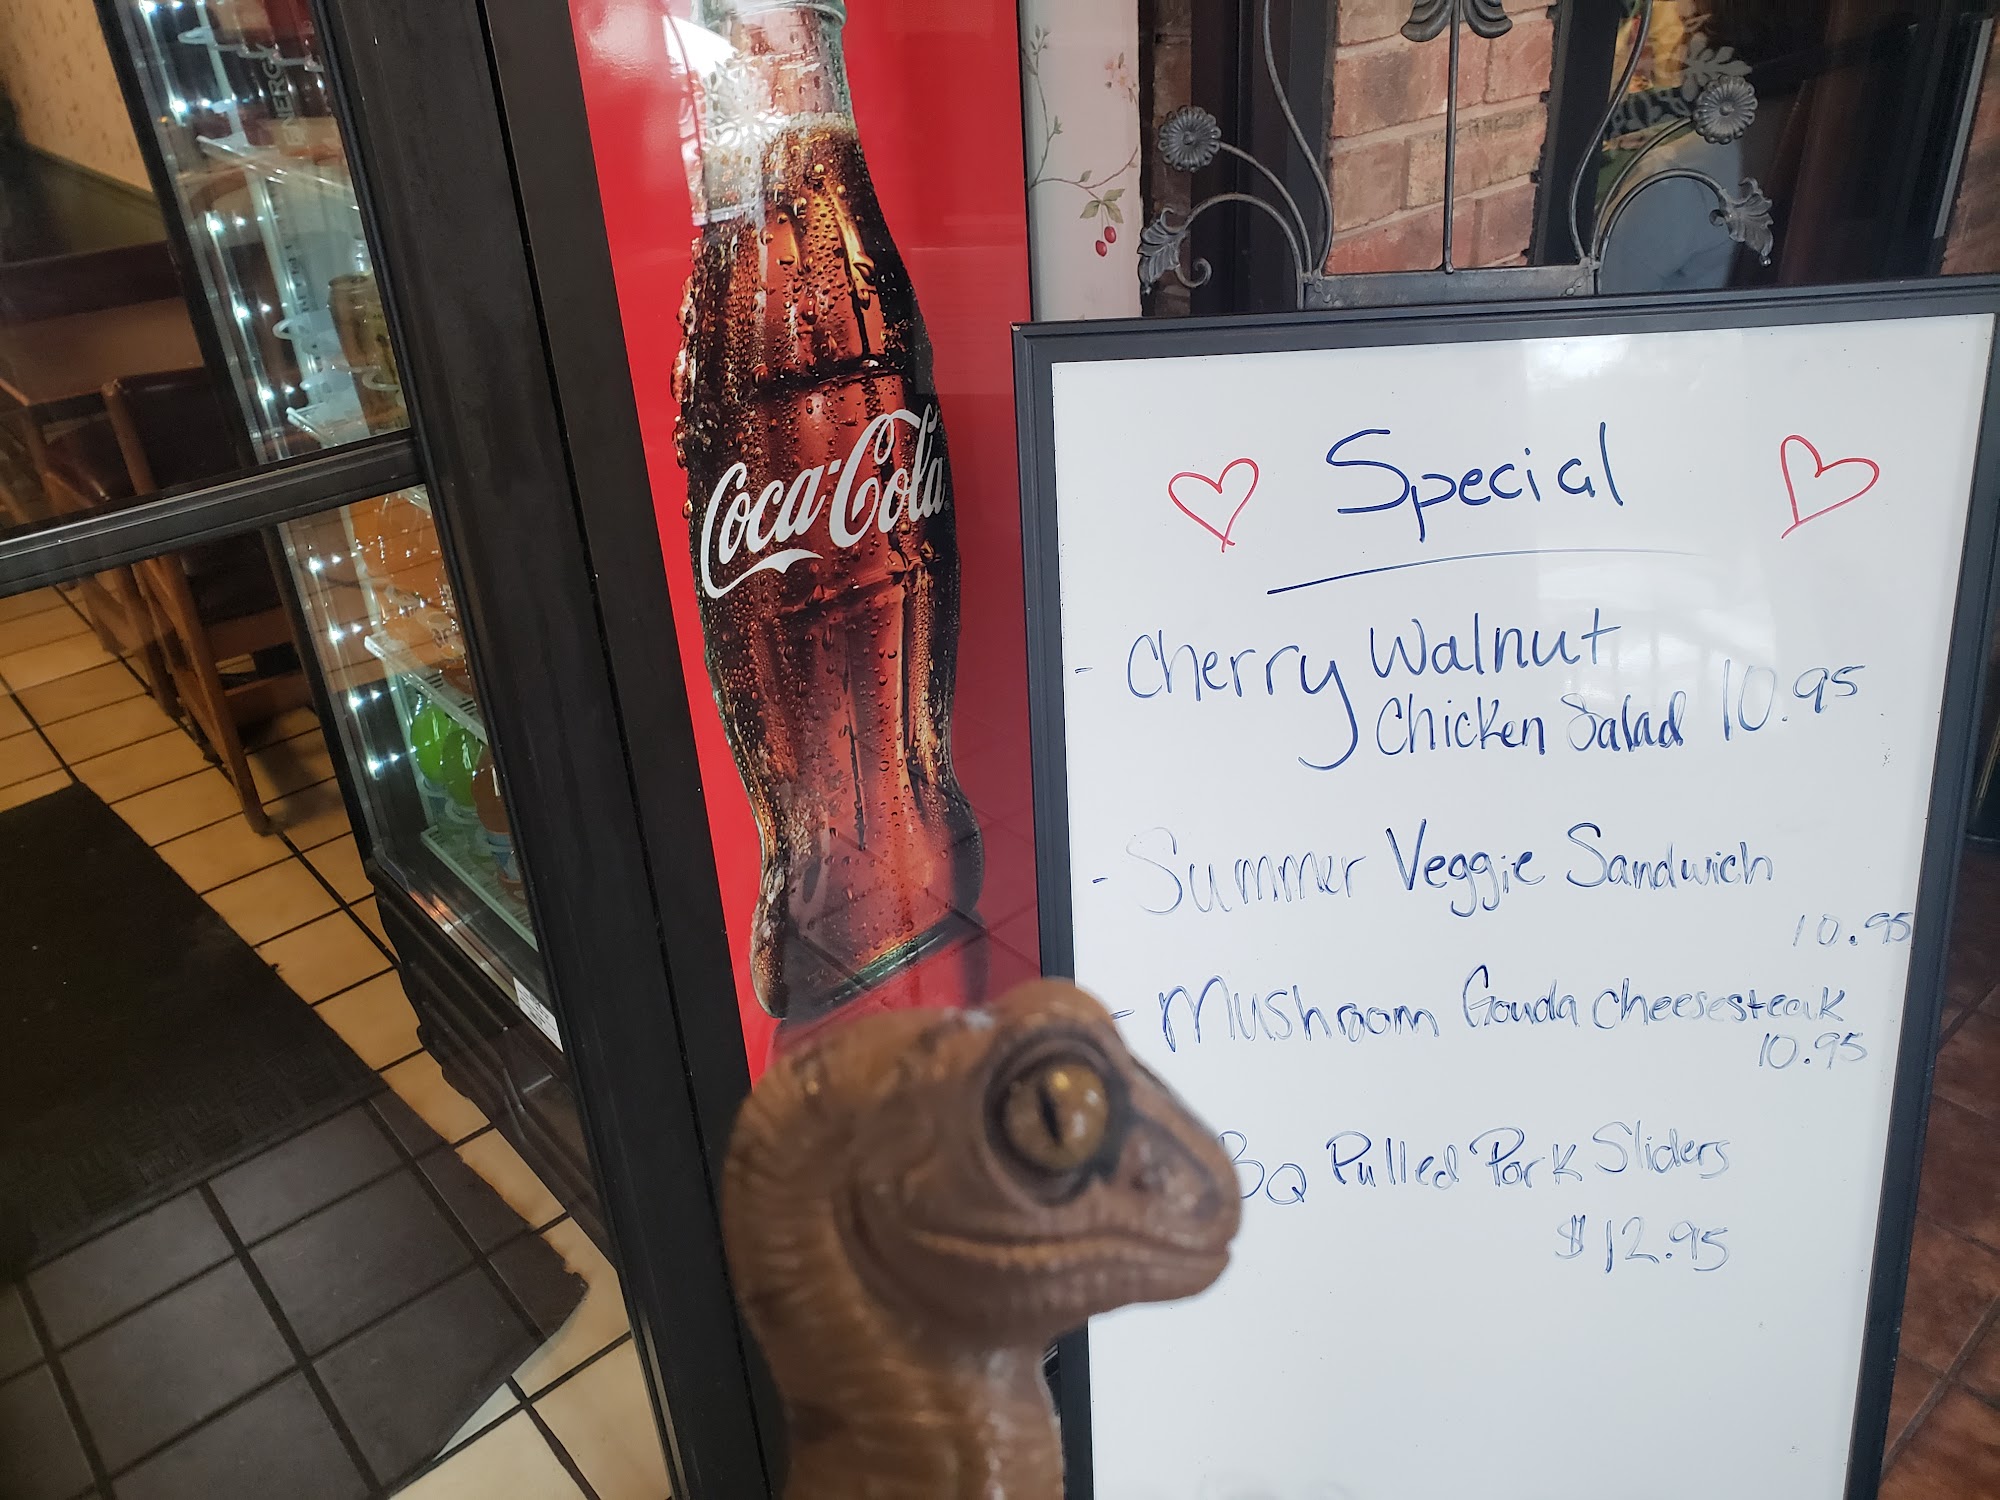 ENERGY
Coca-Cola
Special
- Cherry Walnut
Chicken Salad 10.95
- Summer Veggie Sandwich
10.95
- Mushroom Gouda Cheesesteak
10.95
BQ Pulled Pork Sliders
$12.95